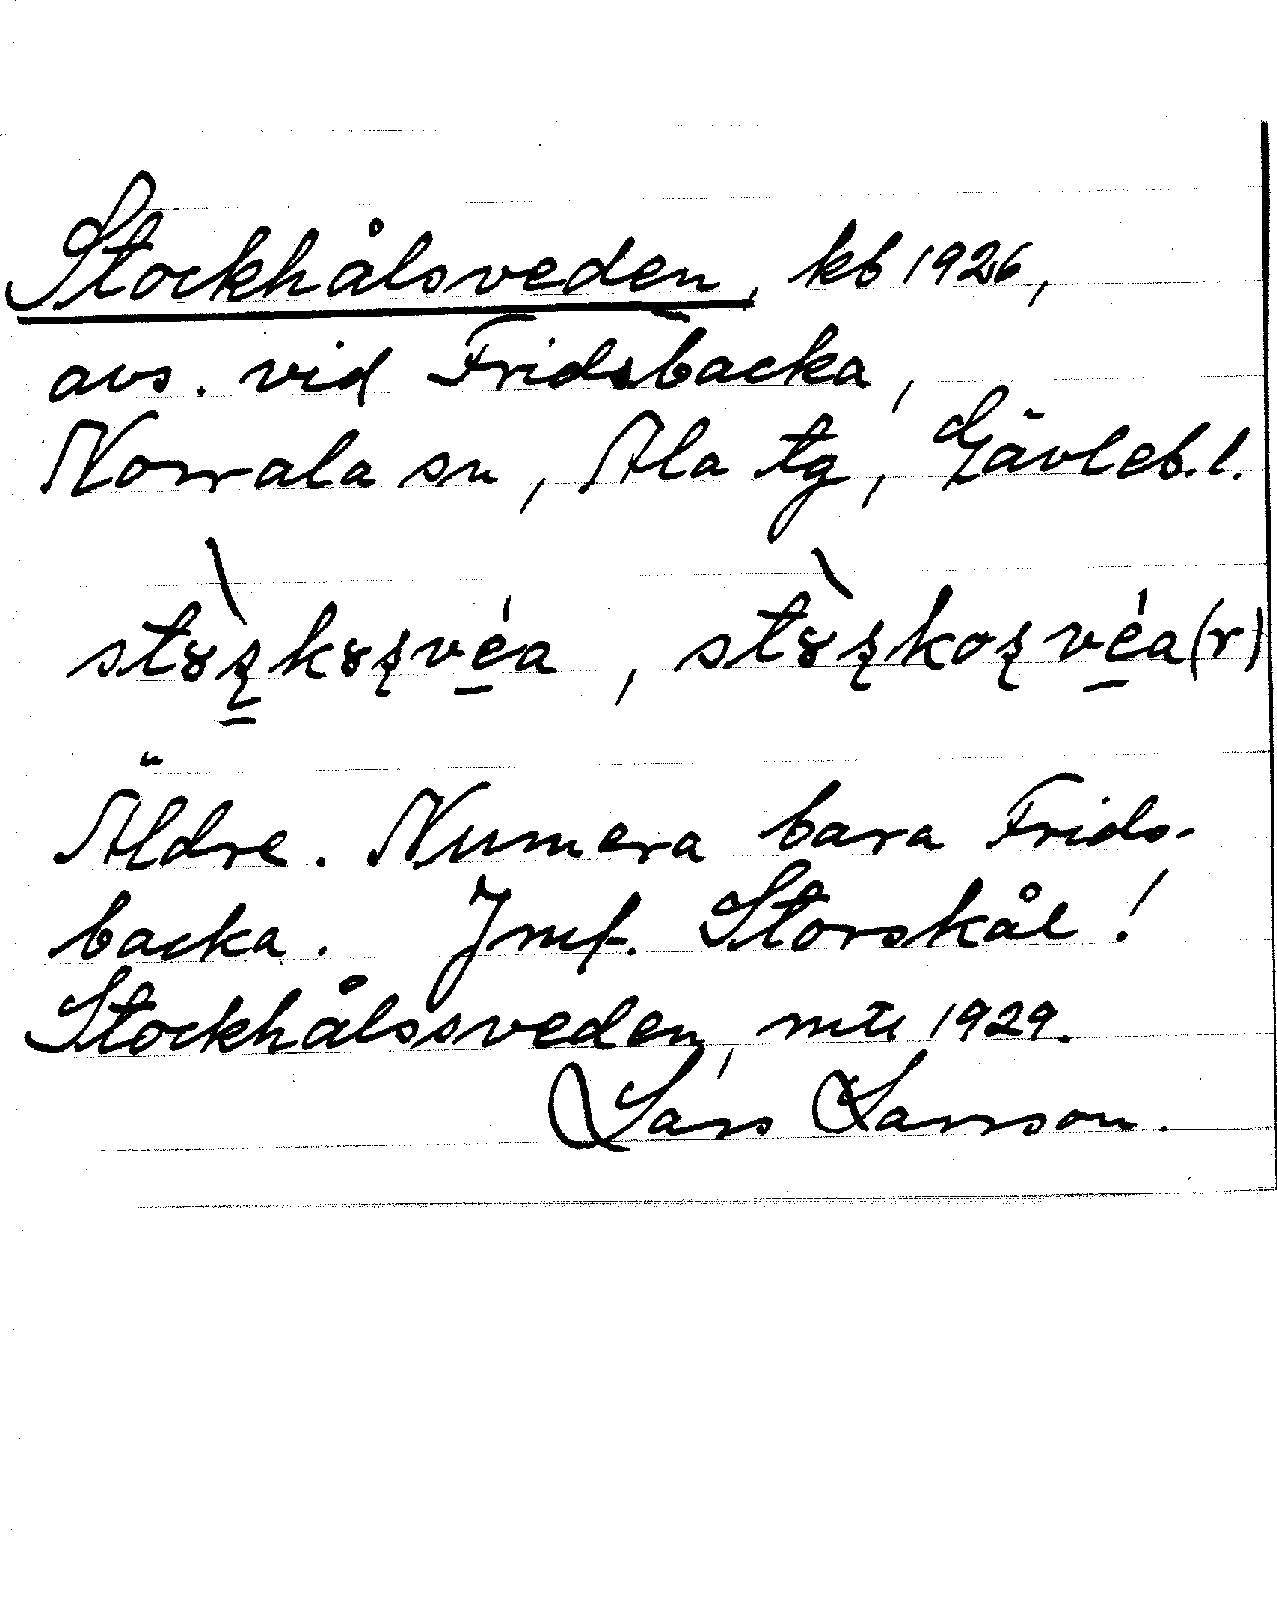 Stockhålsveden, kb 1926,
avs. vid Fridsbacka,
Norrala sn, Ala tg, Gävleb. l.
Äldre. Numera bara Frids-
backa. Jmf. Storskål!
Stockhålssveden, mtl 1929.
Lars Larsson.